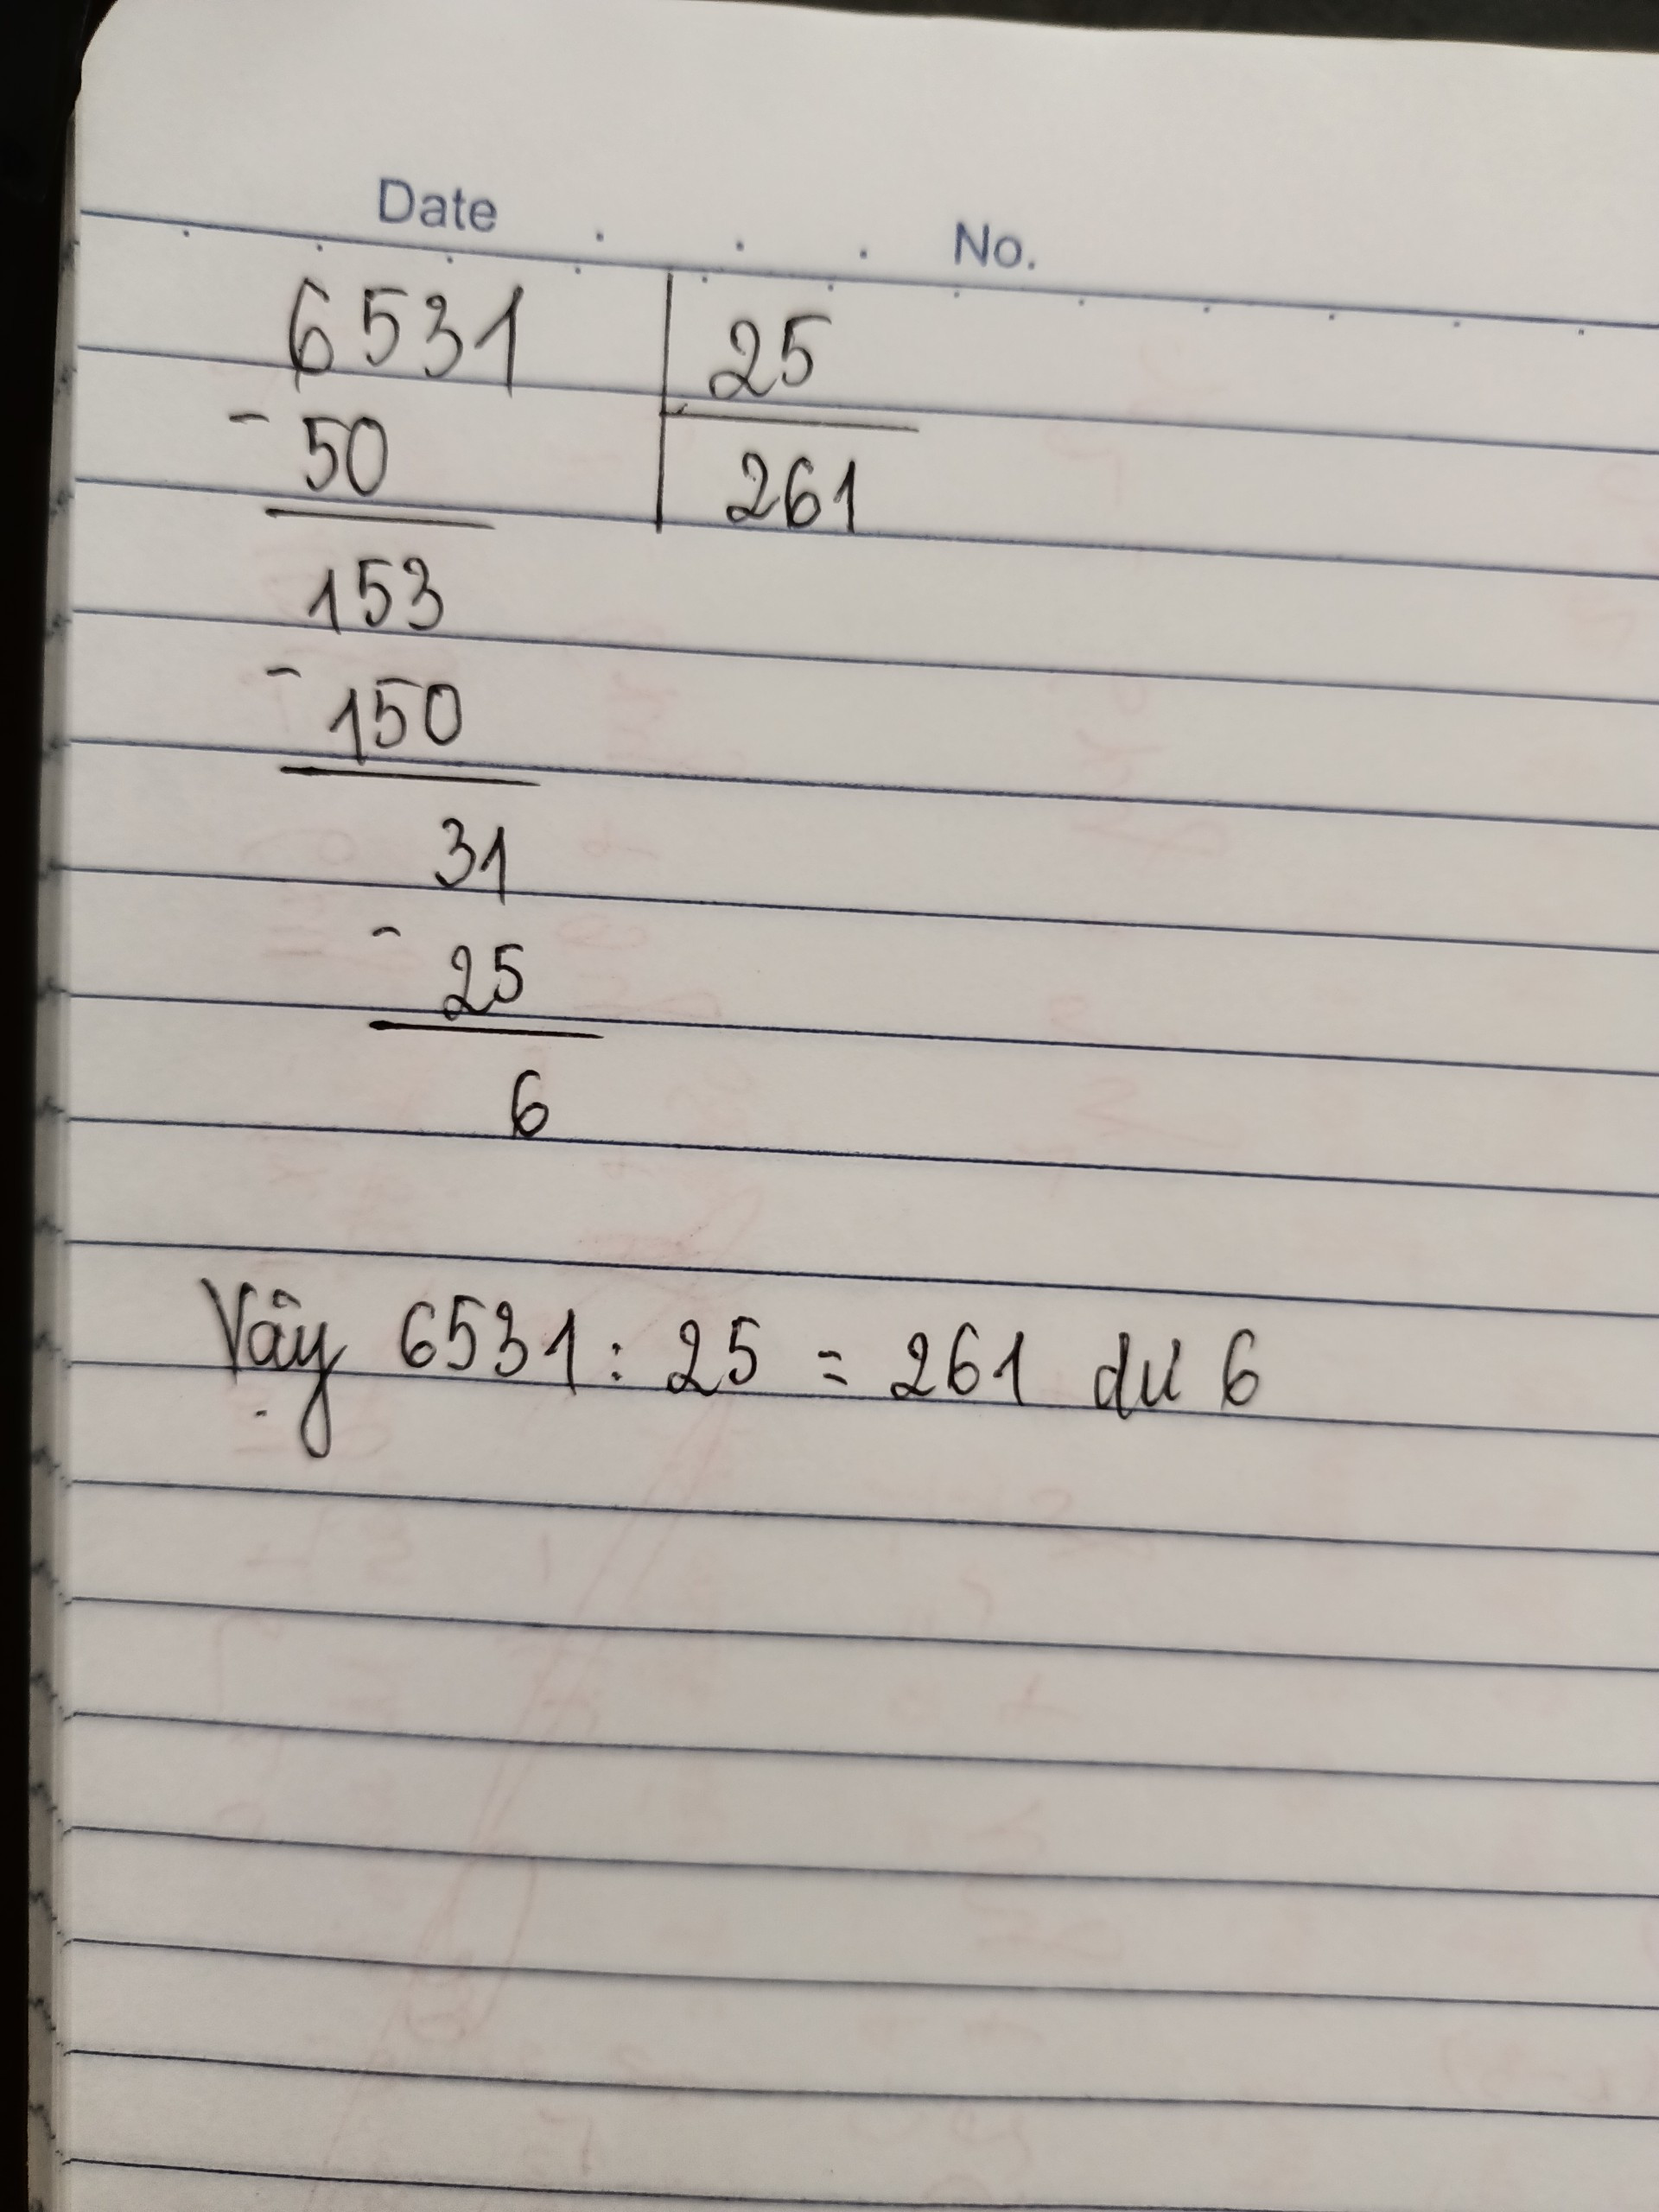 Date . . . No.
6531 | 25
- 50 | 261
153
- 150
31
- 25
6
Vậy 6531 : 25 = 261 dư 6